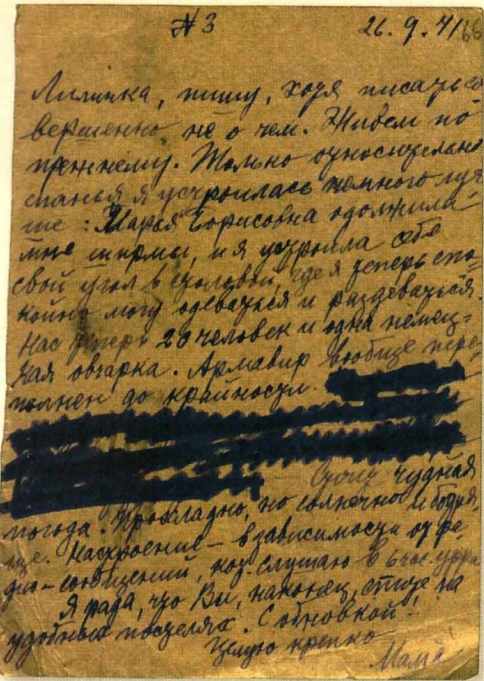 № 3 26.9.41 66
Лилинка, пишу, хотя писать со
вершенно не о чем. Живем по
прежнему. Только относительно
спанья я устроилась немного луч
ше: Марья Борисовна одолжила
мне ширмы, и я устроила себе
свой угол в столовой, где я теперь спо-
койно могу одеваться и раздеваться.
Нас теперь 20 человек и одна немец-
кая овчарка. Армавир вообще пере-
полнен до крайности.
Стоит чудная
погода. Прохладно, но солнечно и бодря,
ще. Настроение – в зависимости от ра,
дио-сообщений, кот. слушаю в 6 час. утра
Я рада, что Вы, наконец, спите на
удобных постелях. С обновкой!
Целую крепко
Мама